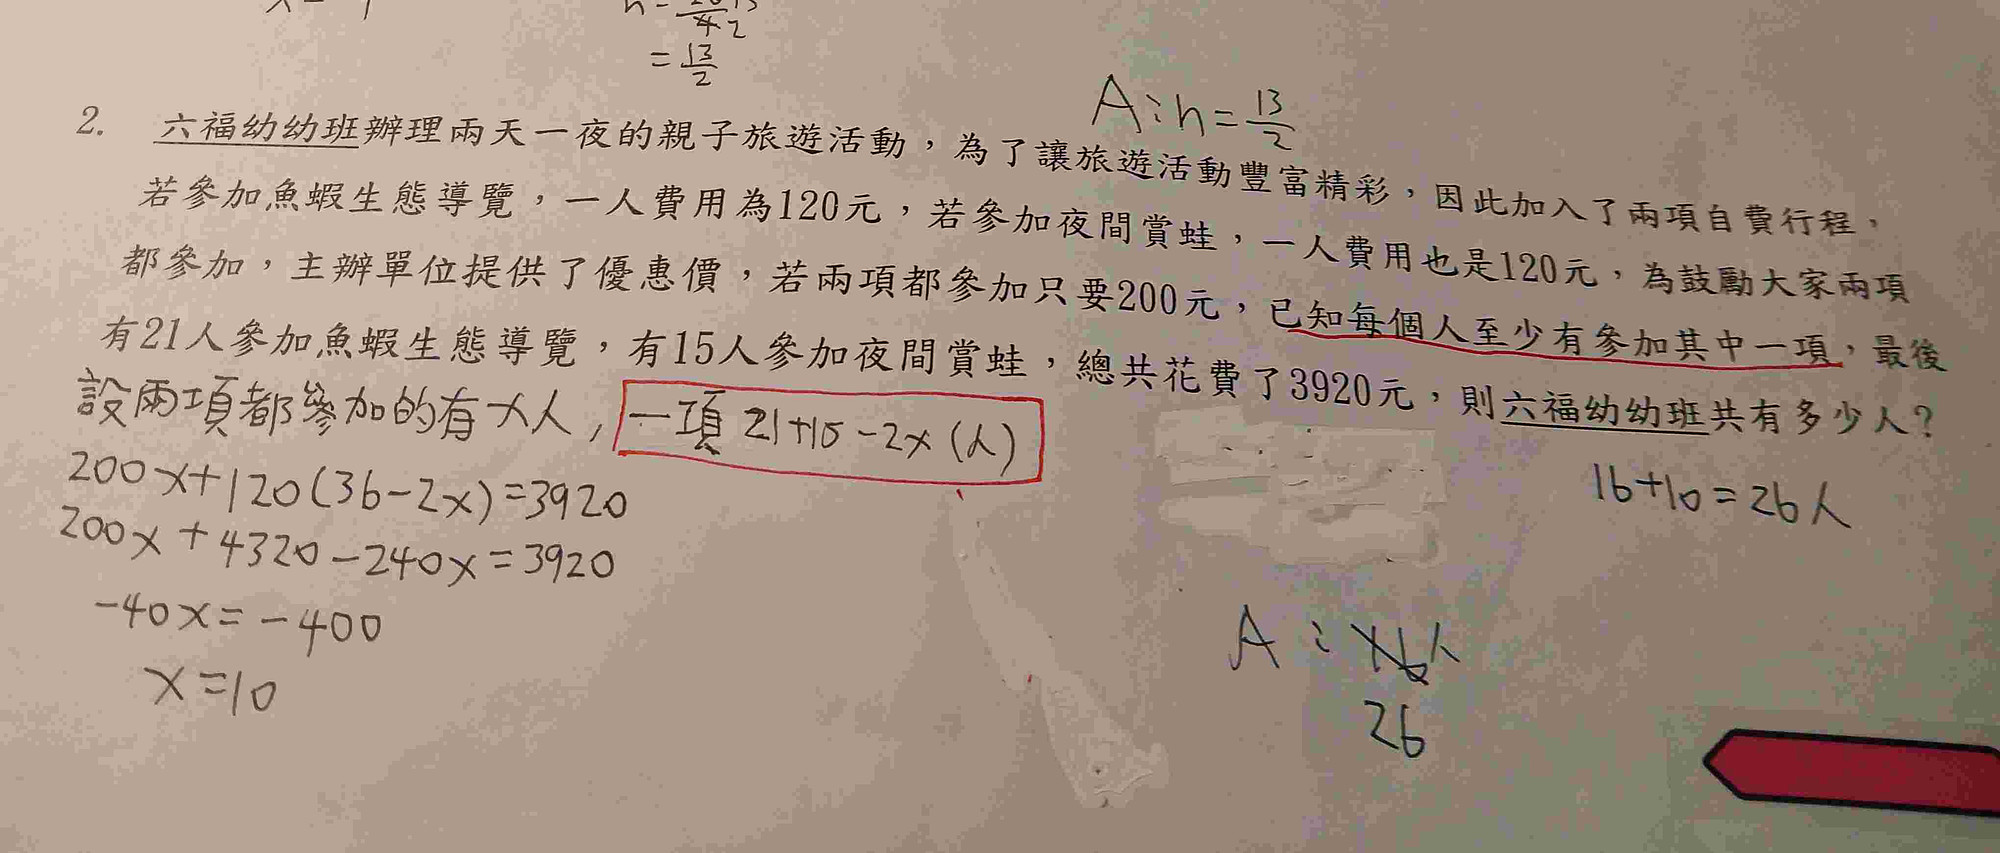 = 13/2
A：n = 13/2
2. 六福幼幼班辦理兩天一夜的親子旅遊活動，為了讓旅遊活動豐富精彩，因此加入了兩項自費行程，
若參加魚蝦生態導覽，一人費用為120元，若參加夜間賞蛙，一人費用也是120元，為鼓勵大家兩項
都參加，主辦單位提供了優惠價，若兩項都參加只要200元，已知每個人至少有參加其中一項，最後
有21人參加魚蝦生態導覽，有15人參加夜間賞蛙，總共花費了3920元，則六福幼幼班共有多少人？
設兩項都參加的有x人，一項 21+15-2x (人)
200x+120(36-2x)=3920
200x+4320-240x=3920
-40x=-400
x=10
16+10=26人
A：
26